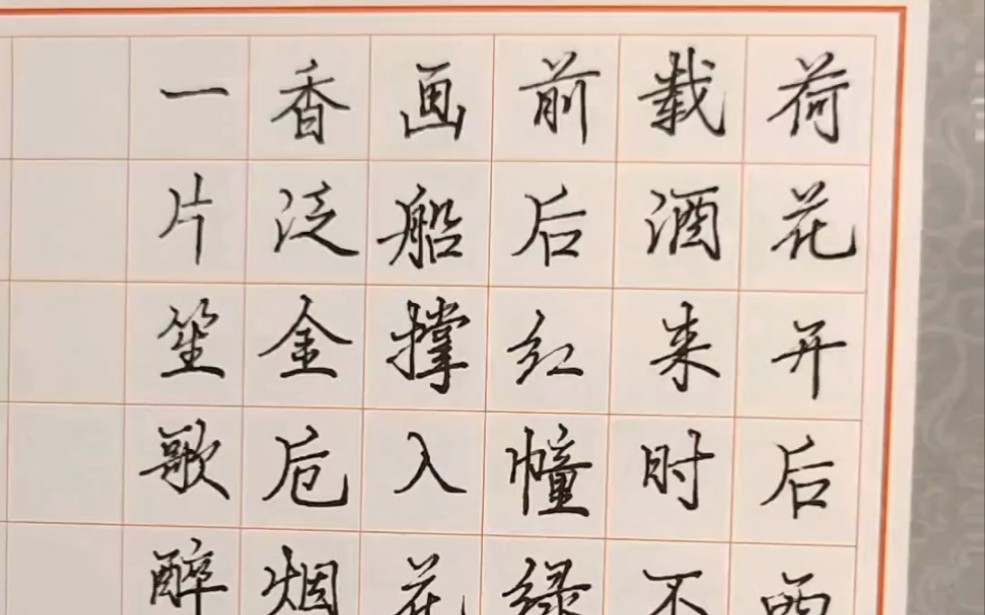 荷花开后西
载酒来时不
前后红幢绿
画船撑入花
香泛金卮烟
一片笙歌醉